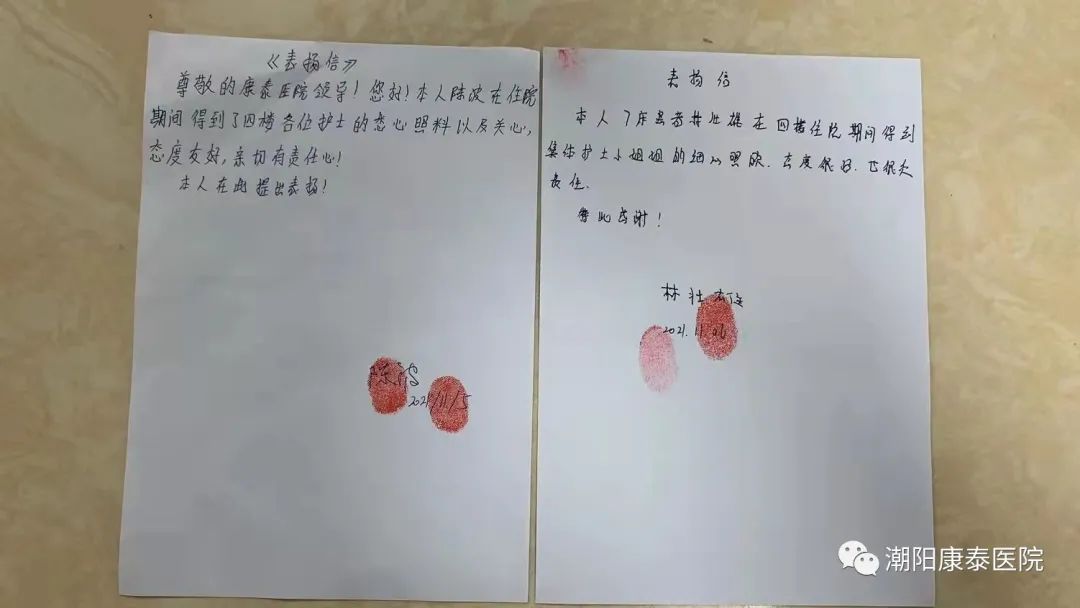 《表扬信》
尊敬的康泰医院领导！您好！本人陈波在住院
期间得到了四楼各位护士的悉心照料以及关心，
态度友好，亲切有责任心！
本人在此提出表扬！
陈波
2021/11/5
表扬信
本人 林壮雄在四楼住院期间得到
集体护士小姐姐的细心照顾.态度很好.
责任.
感谢！
林壮雄
2021.11.06
潮阳康泰医院